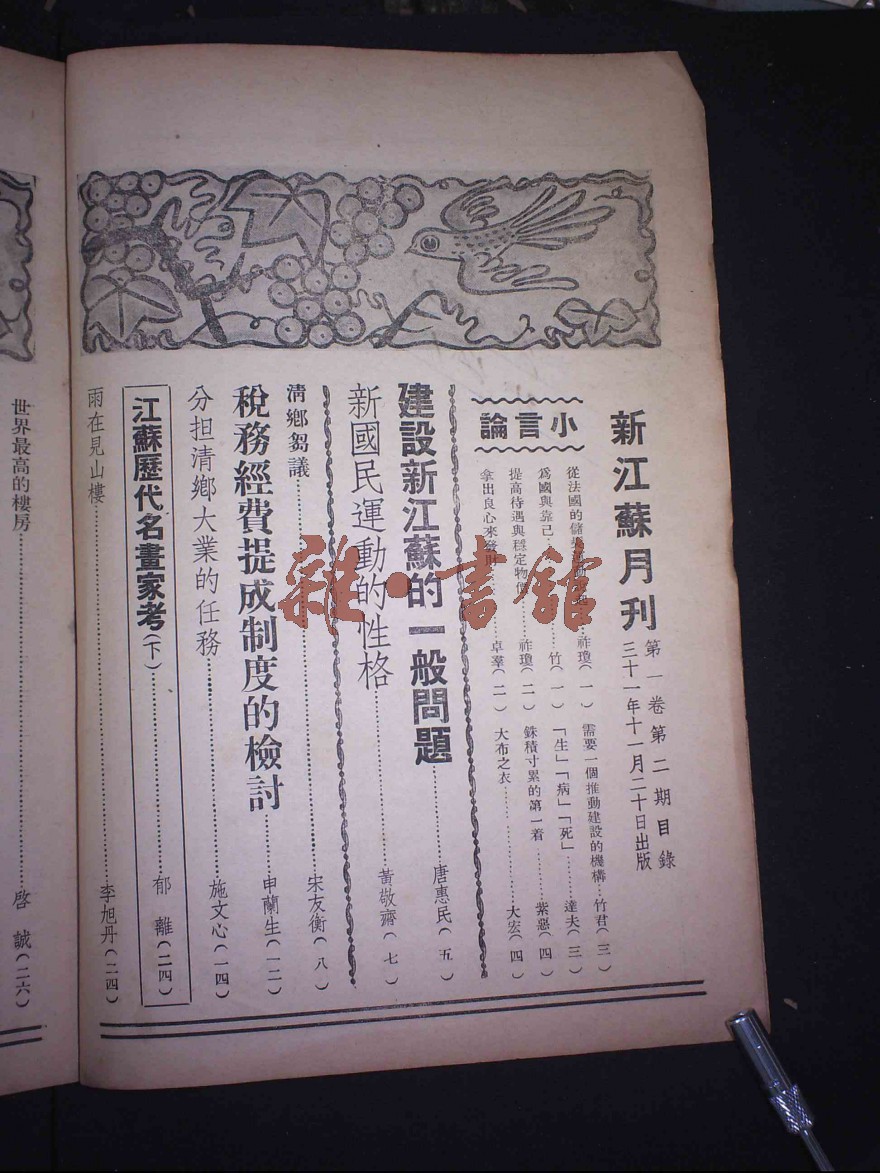 新江蘇月刊
第一卷第二期目錄
三十一年十一月二十日出版
小言論
從法國的儲
祚瓊(一)
需要一個推動建設的機構
竹君(三)
爲國與靠己
竹(一)
「生」「病」「死」
達夫(三)
提高待遇與穩定物價
祚瓊(二)
銖積寸累的第一着
紫惡(四)
拿出良心來發
卓羣(二)
大布之衣
大宏(四)
建設新江蘇的一般問題
唐惠民(五)
新國民運動的性格
黃敬齋(七)
清鄉芻議
宋友衡(八)
稅務經費提成制度的檢討
申蘭生(一二)
分担清鄉大業的任務
施文心(一四)
江蘇歷代名畫家考(下)
郁離(二四)
雨在見山樓
李旭丹(二四)
世界最高的樓房
啓誠(二六)
雜·書館